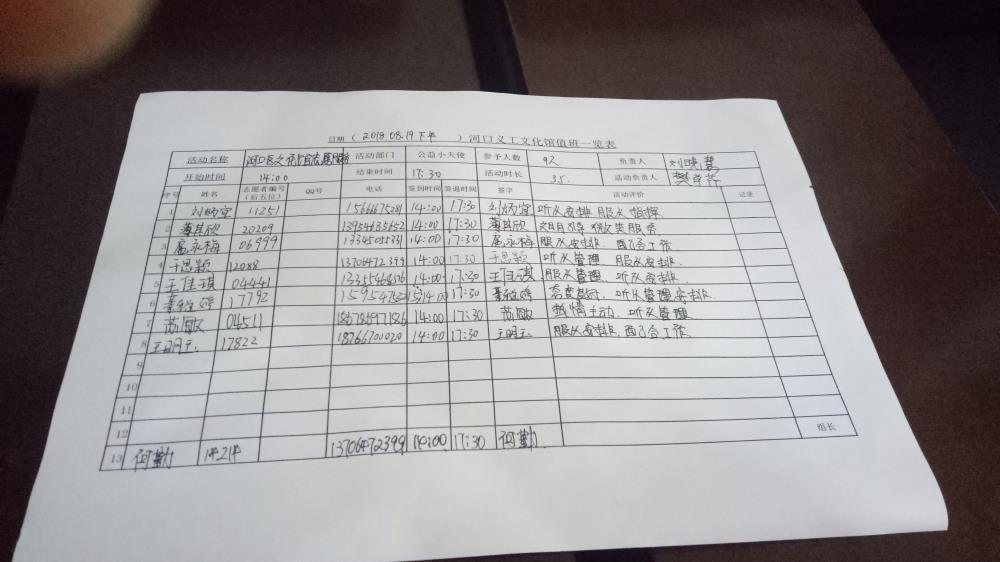 日期（ 2018.08.19下午 ）河口义工文化馆值班一览表
活动名称 河口区文化馆志愿服务 活动部门 公益小天使 参予人数 9人 负责人 刘晓慧
开始时间 14:00 结束时间 17:30 活动时长 3.5. 活动负责人
序号 姓名 志愿者编号（后五位） QQ号 电话 签到时间 签退时间 签字 活动评价 记录
1 刘炳宜 11251 1566675281 14:00 17:30 刘炳宜 听从安排 服从指挥
2 其欣 20209 13954635152 14:00 17:30 其欣 服务
3 永梅 06999 13345055331 14:00 17:30 永梅 服从安排、配合工作
4 于思颖 12088 13706472399 14:00 17:30 于思颖 听从管理、服从安排.
5 王佳琪 04441 14:00 17:30 王佳琪 服从管理、听从安排.
6 17792 14:00 17:30 听从管理安排.
7 敏 04511 18678697186 14:00 17:30 敏 热情主动、听从管理
8 王明玉 17822 18766700020 14:00 17:30 王明玉 服从安排、配合工作
9
10
11
12 组长
13 何勤 14214 13706472399 14:00 17:30 何勤